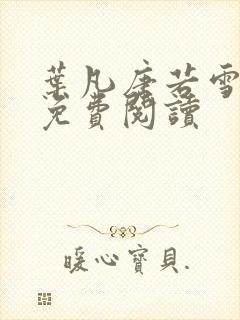 葉凡唐若雪
免費閱讀
暖心寶貝.